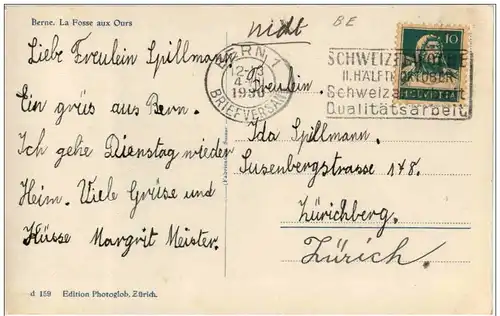 Berne. La Fosse aux Ours
nicht
BE
Liebe Freulein Spillmann.
Ein grüs aus Bern.
Ich gehe Dienstag wieder
Heim. Viele Grüse und
Küsse Margrit Meister.
d 159 Edition Photoglob, Zürich.
BERN 1
12-13
1930
BRIEFVERSAND
SCHWEIZERWOCHE
II. HÄLFTE OKTOBER
Qualitätsarbeit
10
HELVETIA
Freulein.
Ida Spillmann.
Susenbergstrasse 148.
Zürichberg.
Zürich.